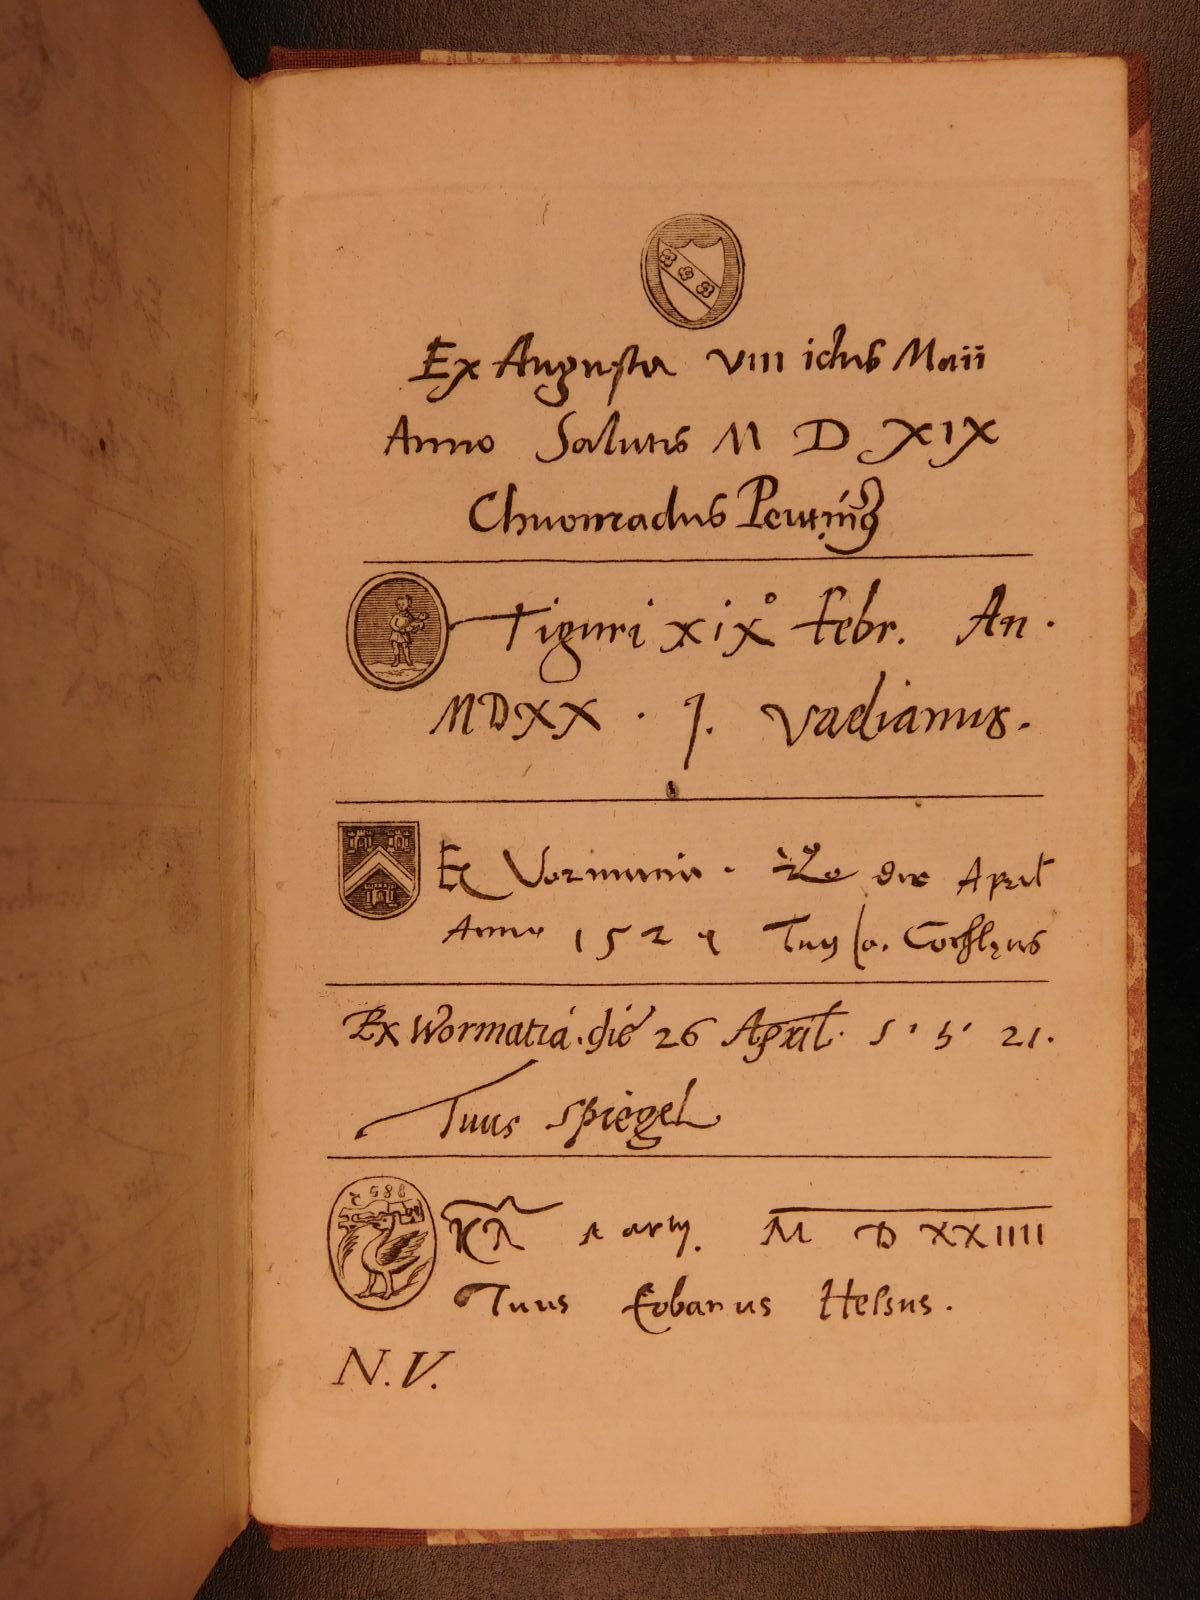 Ex Augusta VIII idus Maii
Anno Salutis M D XIX
Chuonradus Peuting
Tiguri xix° febr. An.
MDXX. J. Vadianus.
Ex die April
Anno 152
Ex Wormatia. die 26 April. 1. 5. 21.
Tuus Spiegel
M D XXIIII
Tuus Eobanus Hessus.
N. V.